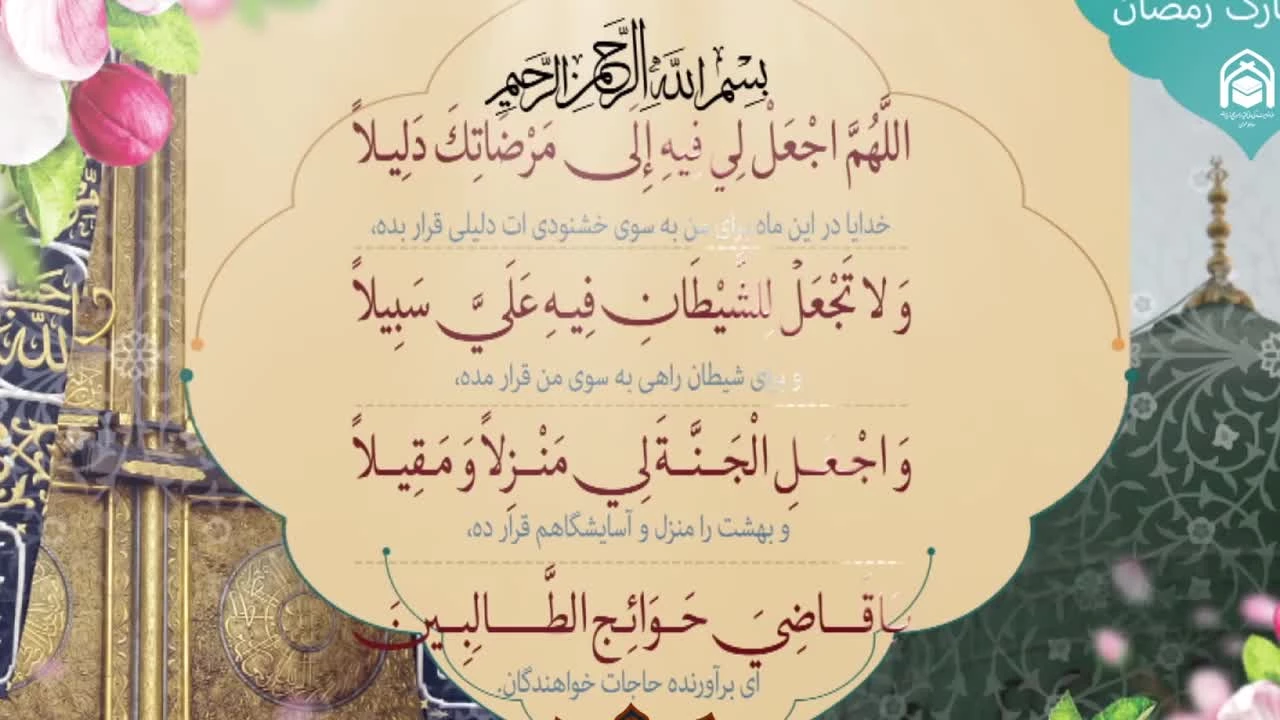 ارک رمضان
بِسْمِ اللَّهِ الرَّحْمَنِ الرَّحِيمِ
اللَّهُمَّ اجْعَلْ لِي فِيهِ إِلَى مَرْضَاتِكَ دَلِيلاً
خدایا در این ماه برای من به سوی خشنودی ات دلیلی قرار بده،
وَ لا تَجْعَلْ لِلشَّيْطَانِ فِيهِ عَلَيَّ سَبِيلاً
و برای شیطان راهی به سوی من قرار مده،
وَ اجْعَلِ الْجَنَّةَ لِي مَنْزِلاً وَ مَقِيلاً
و بهشت را منزل و آسایشگاهم قرار ده،
يَا قَاضِيَ حَوَائِجِ الطَّالِبِينَ
ای برآورنده حاجات خواهندگان.